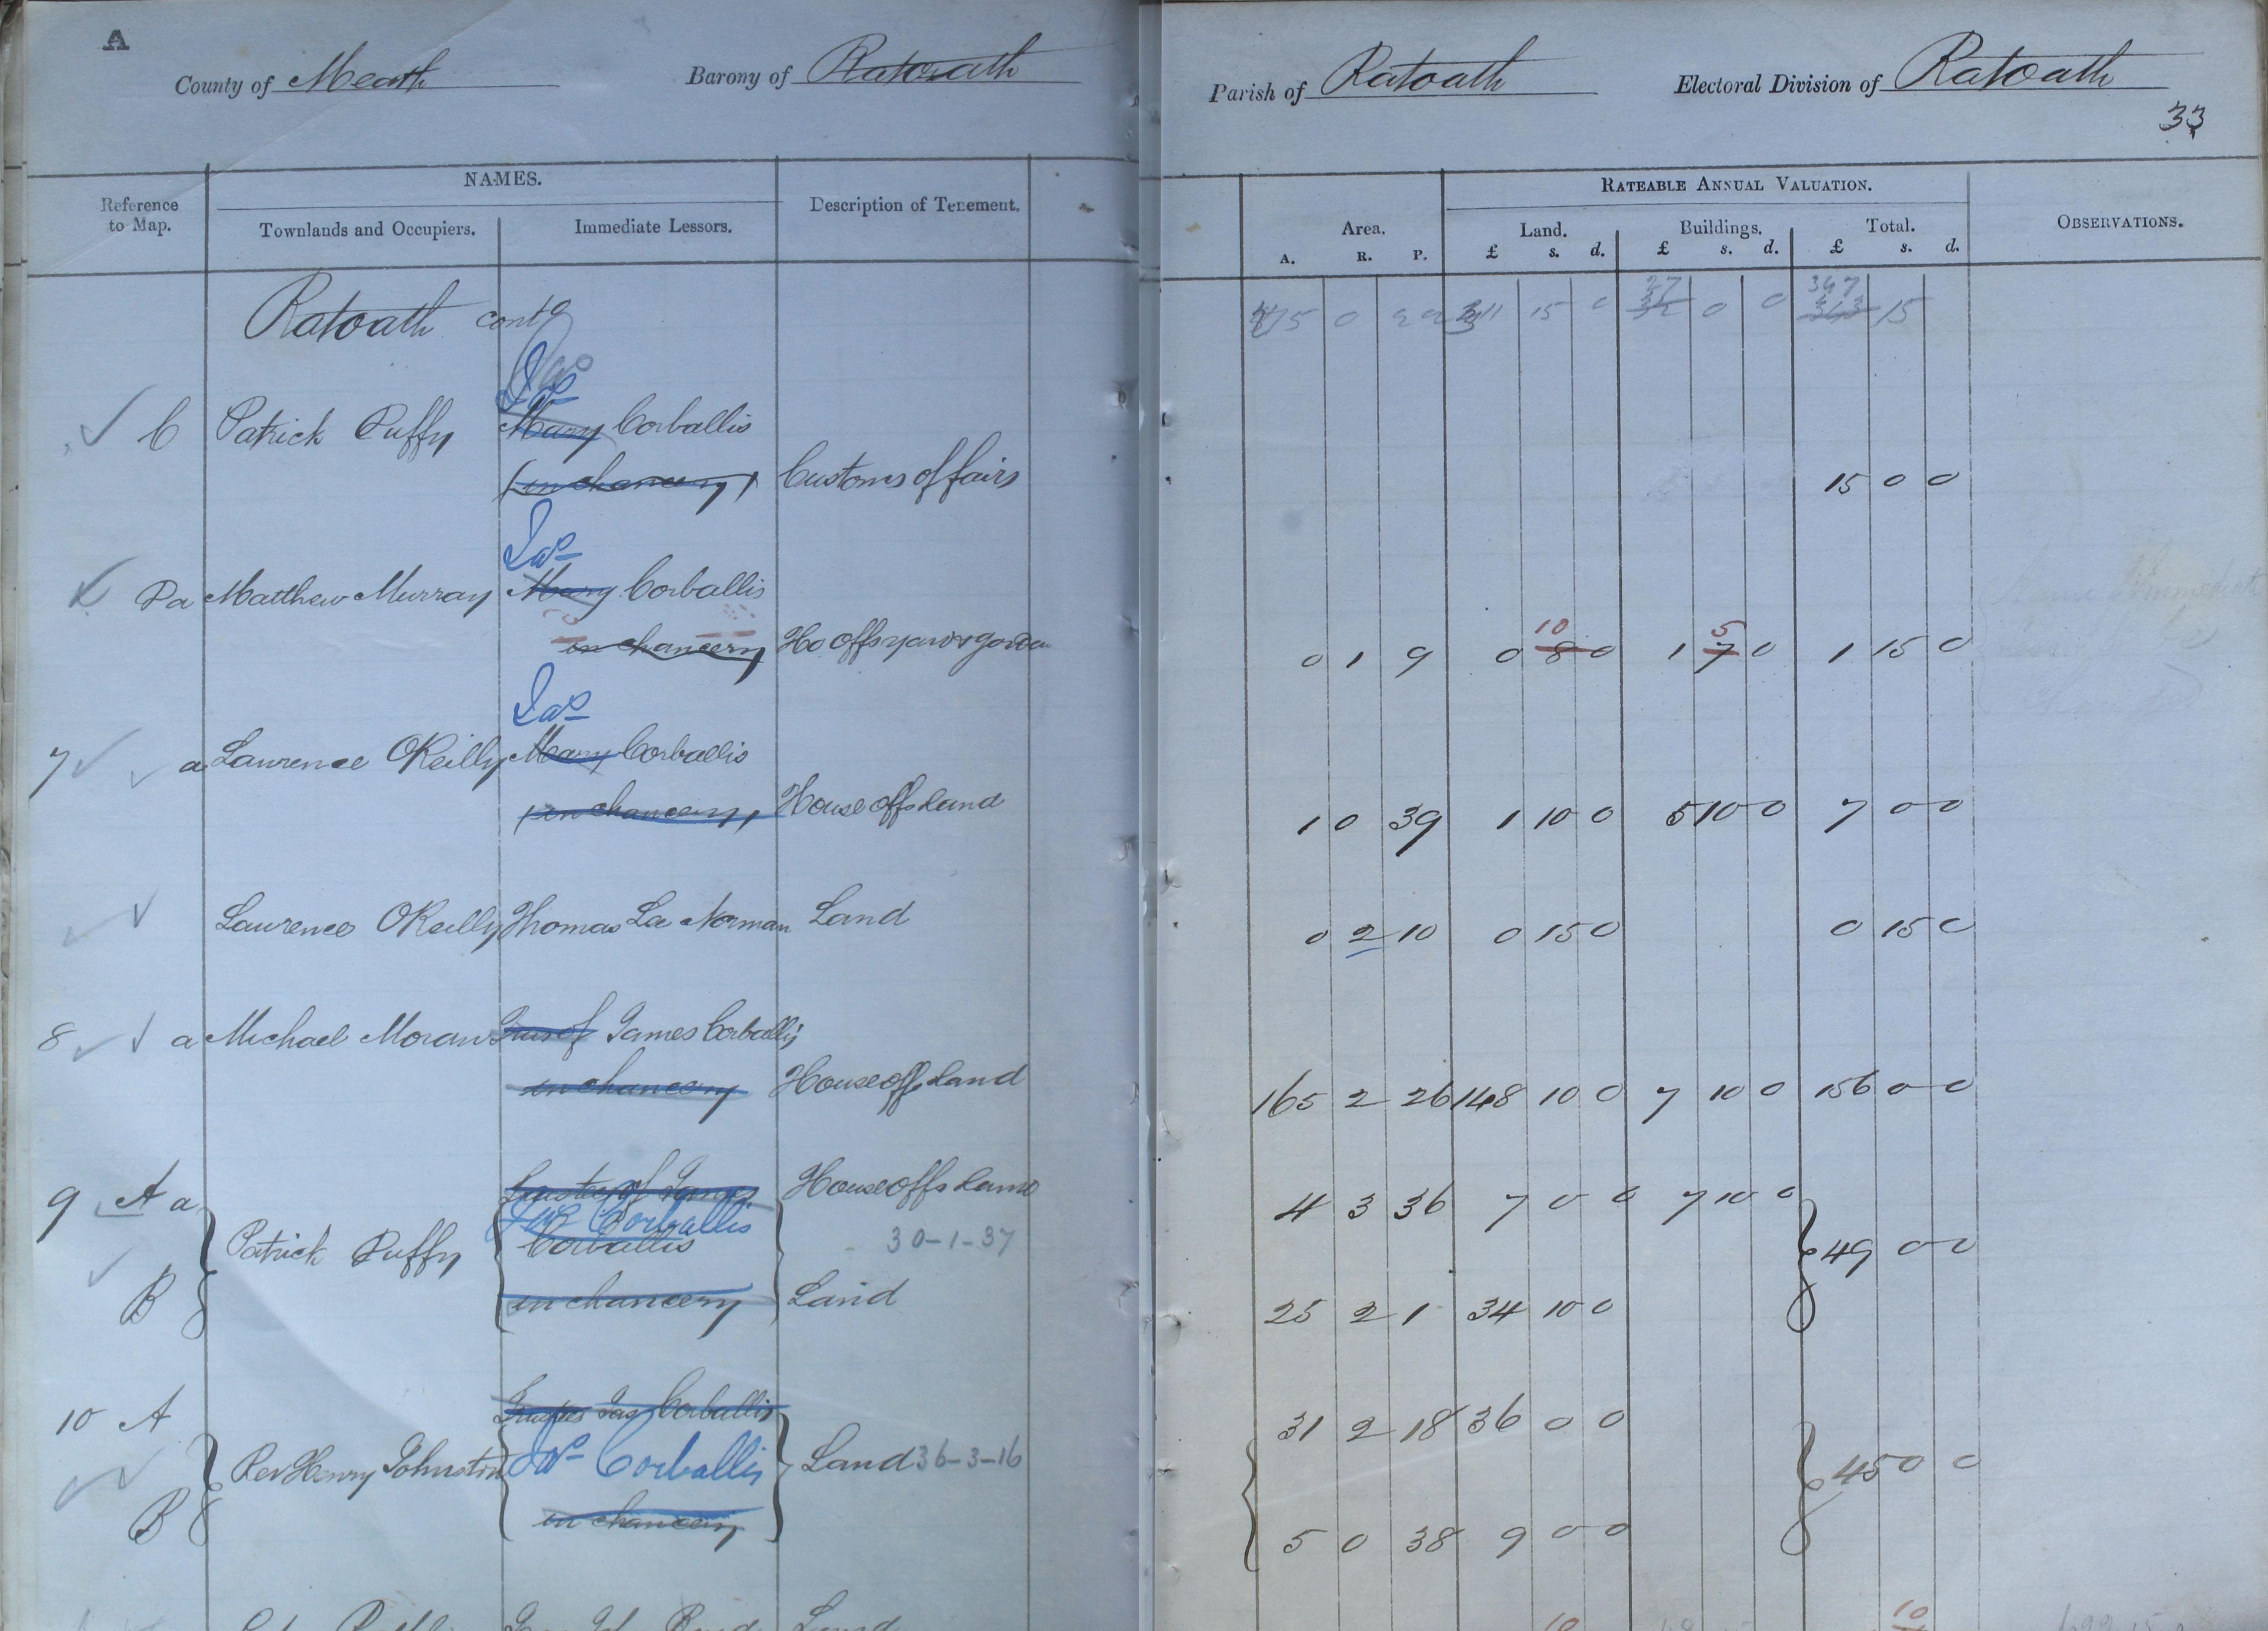 A
County of Meath Barony of Ratoath Parish of Ratoath Electoral Division of Ratoath
33
NAMES. RATEABLE ANNUAL VALUATION.
Reference to Map. Townlands and Occupiers. Immediate Lessors. Description of Tenement. Area. Land. Buildings. Total. OBSERVATIONS.
A. R. P. £ s. d. £ s. d. £ s. d.
27 347
Ratoath contd 0 311 15 0 32 0 0 343 15
Jas
C Patrick Duffy Mary Corballis
(in chancery) Customs of fairs 15 0 0
Jas
Da Matthew Murray Mary Corballis
10 5
in chancery Ho offs yard & garden 0 1 9 0 8 0 1 7 0 1 15 0
Jas
7 a Laurence OReilly Mary Corballis
(in chancery) House offs land 1 0 39 1 10 0 5 10 0 7 0 0
Laurence OReilly Thomas La Norman Land 0 2 10 0 15 0 0 15 0
8 a Michael Moran Trus of James Corballis
in chancery House offs land 165 2 26 148 10 0 7 10 0 156 0 0
9 A a Trustees of James House offs land 4 3 36 7 0 0 7 10 0
Jas Corballis
Patrick Duffy Corballis 30-1-37 49 0 0
B in chancery Land 25 2 1 34 10 0
10 A Trustees Jas Corballis 31 2 18 36 0 0
Rev Henry Johnston Jas Corballis Land 36-3-16 45 0 0
B in chancery 5 0 38 9 0 0
10 10
Land